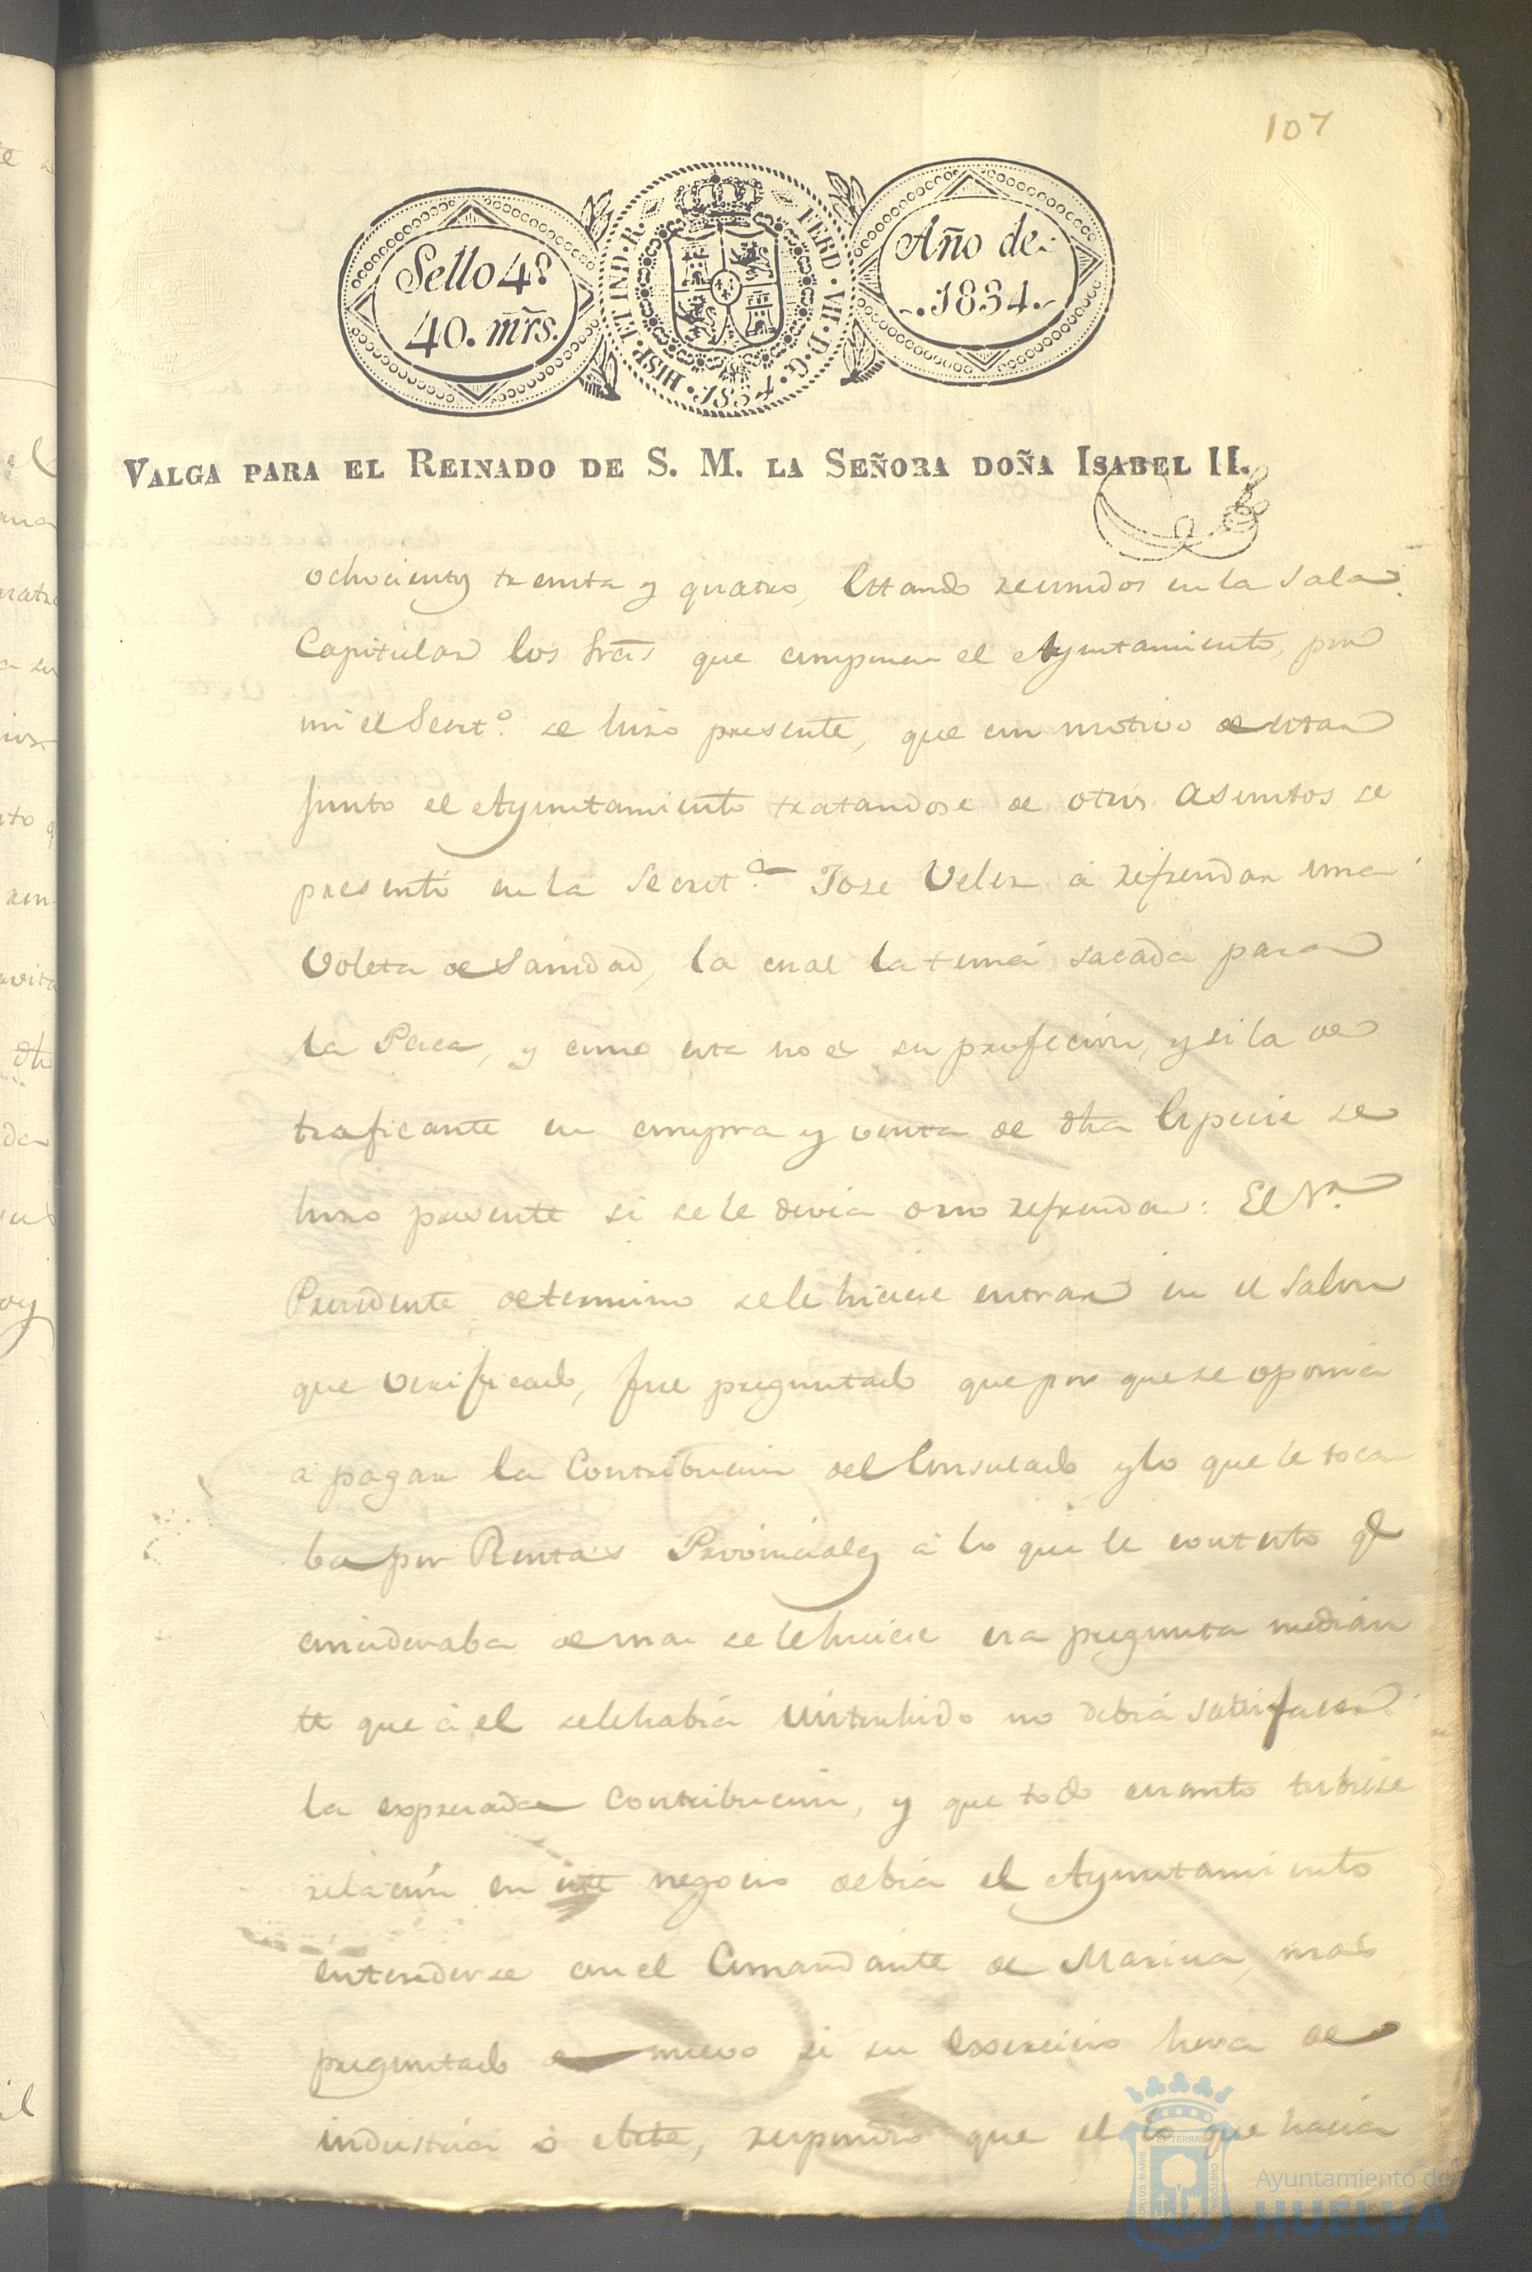 107
Sello 4º
40. mrs.
HISP. ET IND. R.
FERD. VII. D. G.
1834
Año de
1834.
VALGA PARA EL REINADO DE S. M. LA SEÑORA DOÑA ISABEL II.
ochocientos treinta y quatro, Estando reunidos en la Sala
Capitular los Sres que componen el Ayuntamiento, por
mi el Secretº. se hiso presente, que con motivo de estar
Junto el Ayuntamiento tratandose de otros asuntos se
presentó en la Secretª. Jose Velez á refrendar una
Voleta de Sanidad, la cual la tenia sacada para
la Pesca, y como esta no es su profecion, y si la de
traficante en compra y venta de dha Especie se
hiso presente si se le devia o no refrendar: El Sr.
Presidente determino se le hiciese entrar en el Salon
que verificado, fue preguntado que por que se oponia
a pagar la Contribucion del Consulado y lo que le toca
ba por Rentas Provinciales á lo que le contesto q.e
consideraba demas se le hiciese esa pregunta median
te que á el se le habia no debia satisfacer
la expresada Contribucion, y que todo cuanto tubiese
relacion en este negocio debia el Ayuntamiento
entenderse con el Comandante de Marina, mas
preguntado de nuevo si su Exsercicio hera de
industria ó , respondio que el lo que hacia
Ayuntamiento de
HUELVA